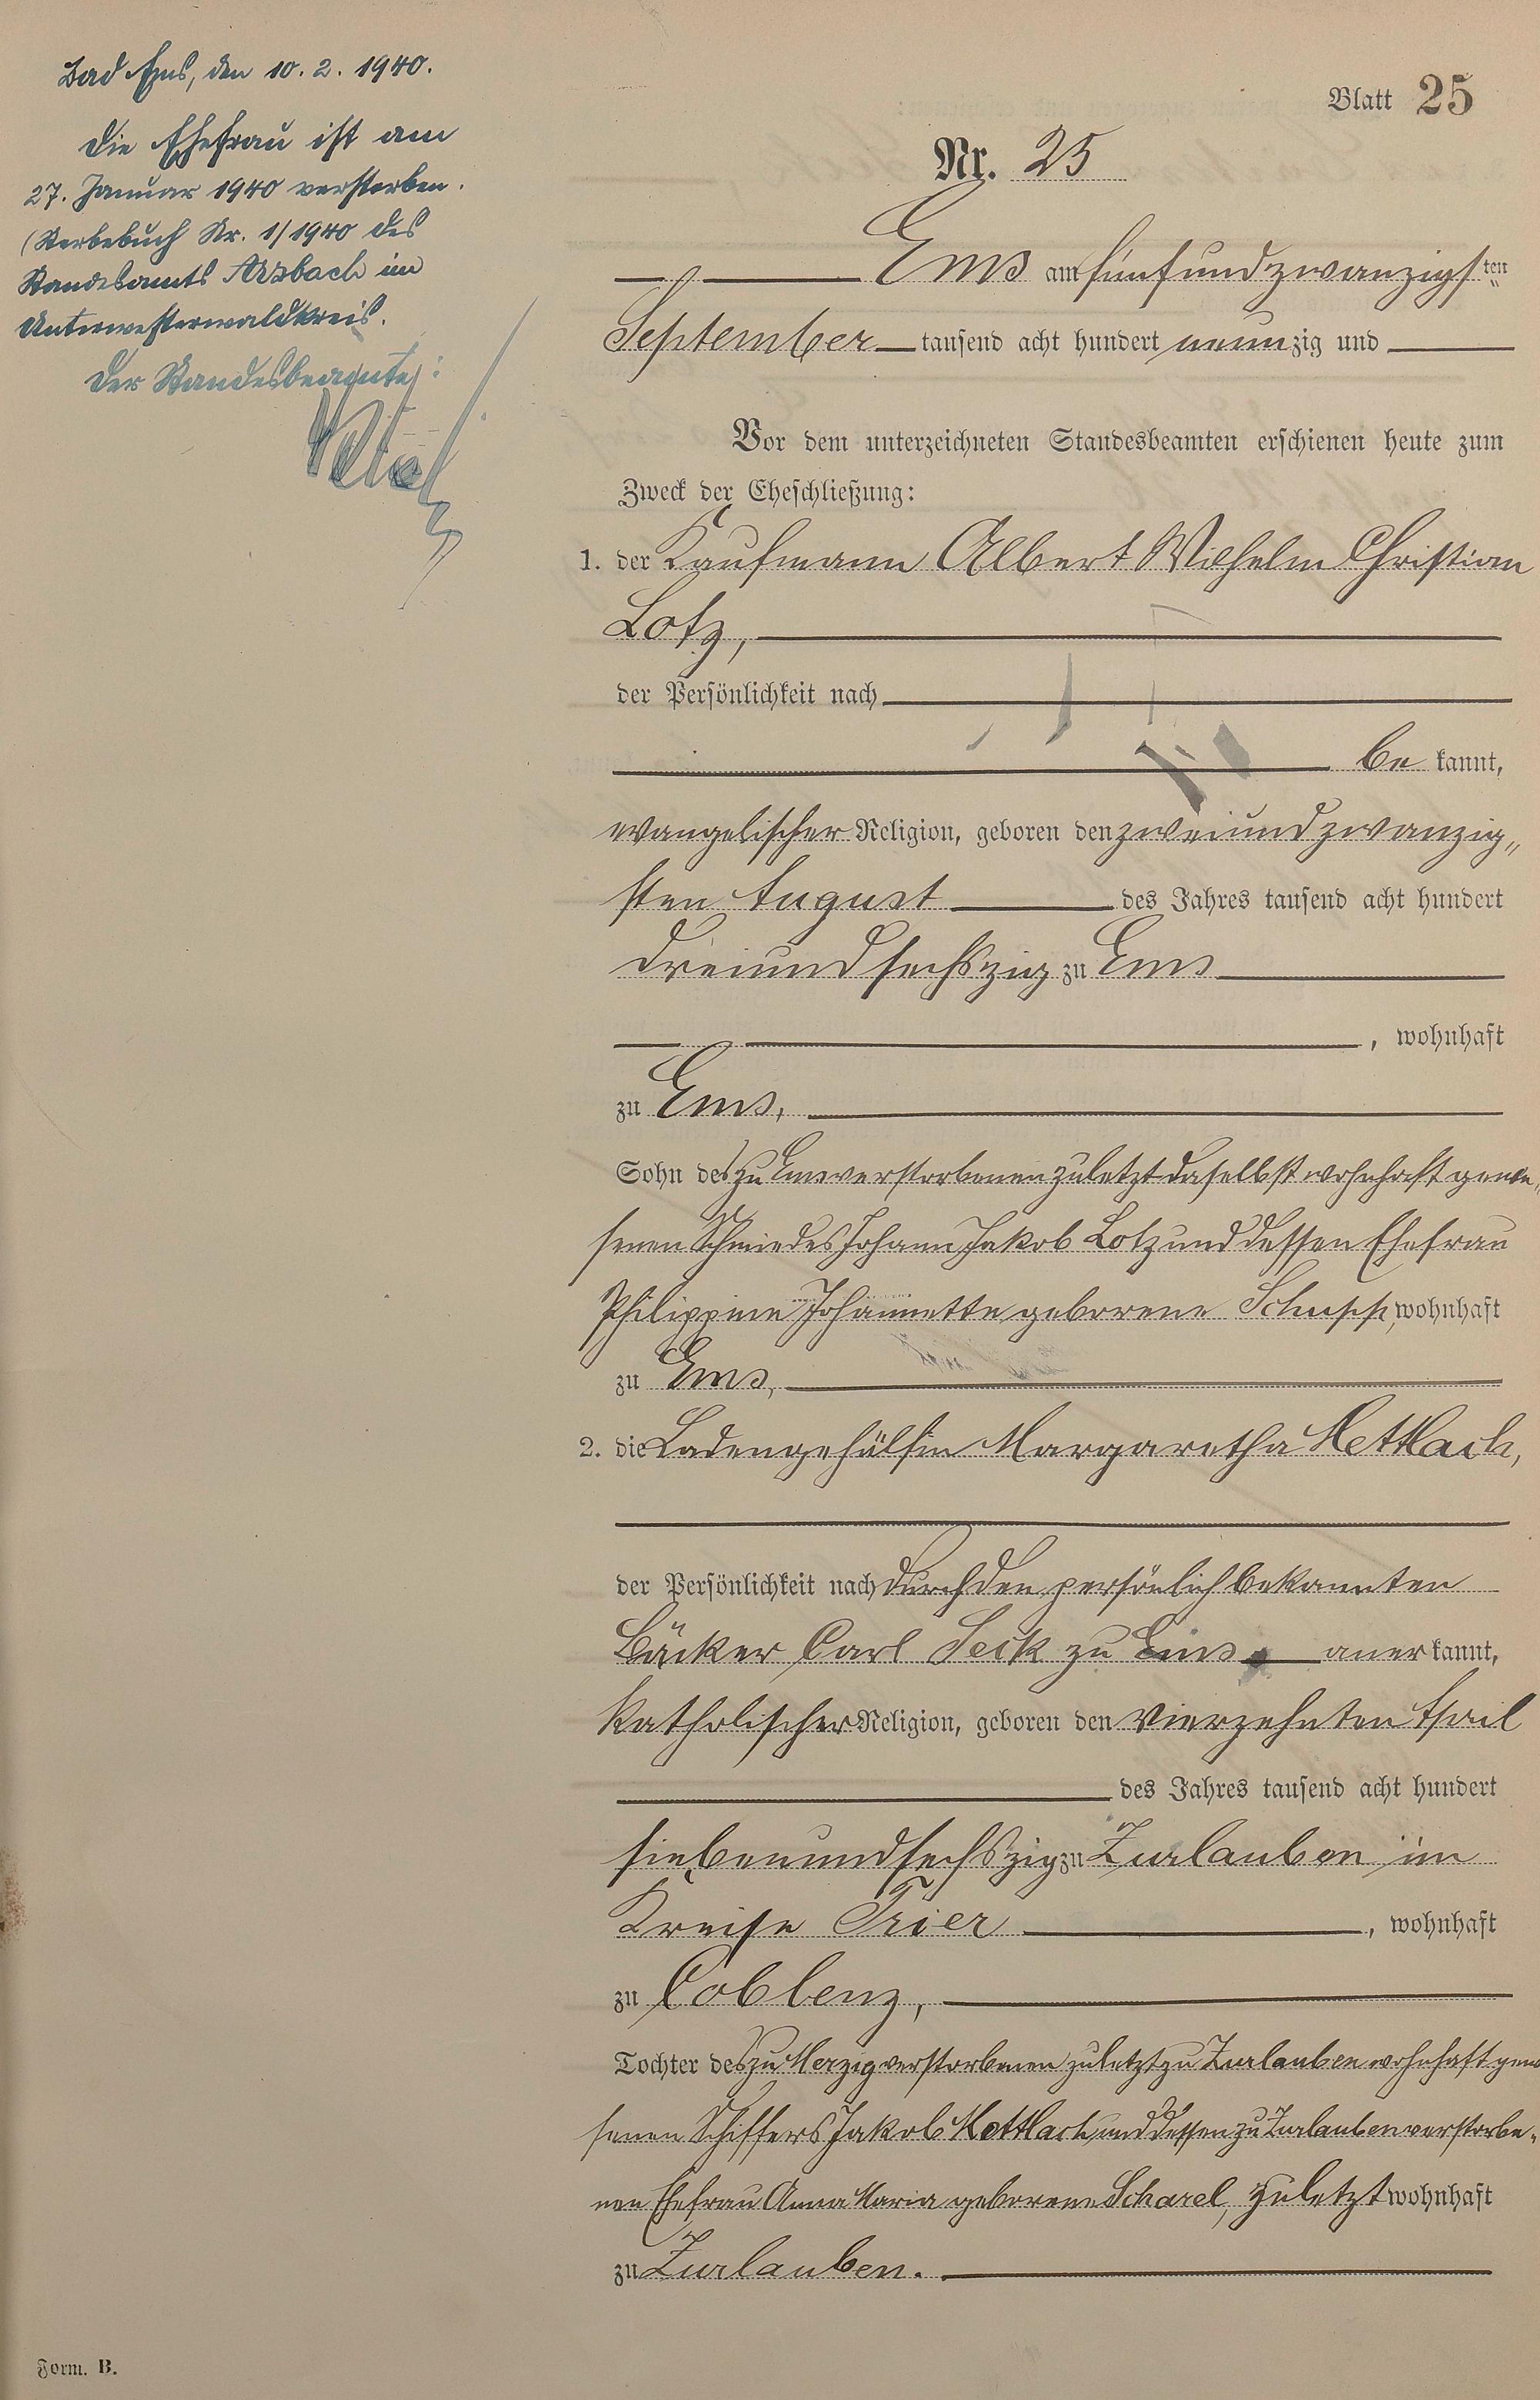 Bad Ems, den 10. 2. 1940.
Die Ehefrau ist am
27. Januar 1940 verstorben.
(Sterbebuch Nr. 1/1940 des
Standesamts Arzbach im
Unterwesterwaldkreis.
Der Standesbeamte:
Blatt 25
Nr. 25
Ems am fünfundzwanzigsten
September tausend acht hundert neunzig und
Vor dem unterzeichneten Standesbeamten erschienen heute zum
Zweck der Eheschließung:
1. der Kaufmann Albert Wilhelm Christian
Lotz,
der Persönlichkeit nach
be kannt,
evangelischer Religion, geboren den zweiundzwanzig„
sten August des Jahres tausend acht hundert
dreiundsechszig zu Ems
, wohnhaft
zu Ems,
Sohn des zu Ems verstorbenen zuletzt daselbst wohnhaft gewe„
senen Schmiedes Johann Jakob Lotz und dessen Ehefrau
Philippine Johannette geborene Schupp, wohnhaft
zu Ems,
2. die Ladengehülfin Margaretha Mettlach,
der Persönlichkeit nach durch den persönlich bekannten
Bäcker Carl Seck zu Ems aner kannt,
katholischer Religion, geboren den vierzehnten April
des Jahres tausend acht hundert
siebenundsechszig zu Zurlauben im
Kreise Trier , wohnhaft
zu Coblenz,
Tochter des zu Merzig verstorbenen zuletzt zu Zurlauben wohnhaft gewe
senen Schiffers Jakob Mettlach und dessen zu Zurlauben verstorbe„
nen Ehefrau Anna Maria geborene Scharel, zuletzt wohnhaft
zu Zurlauben.
Form. B.